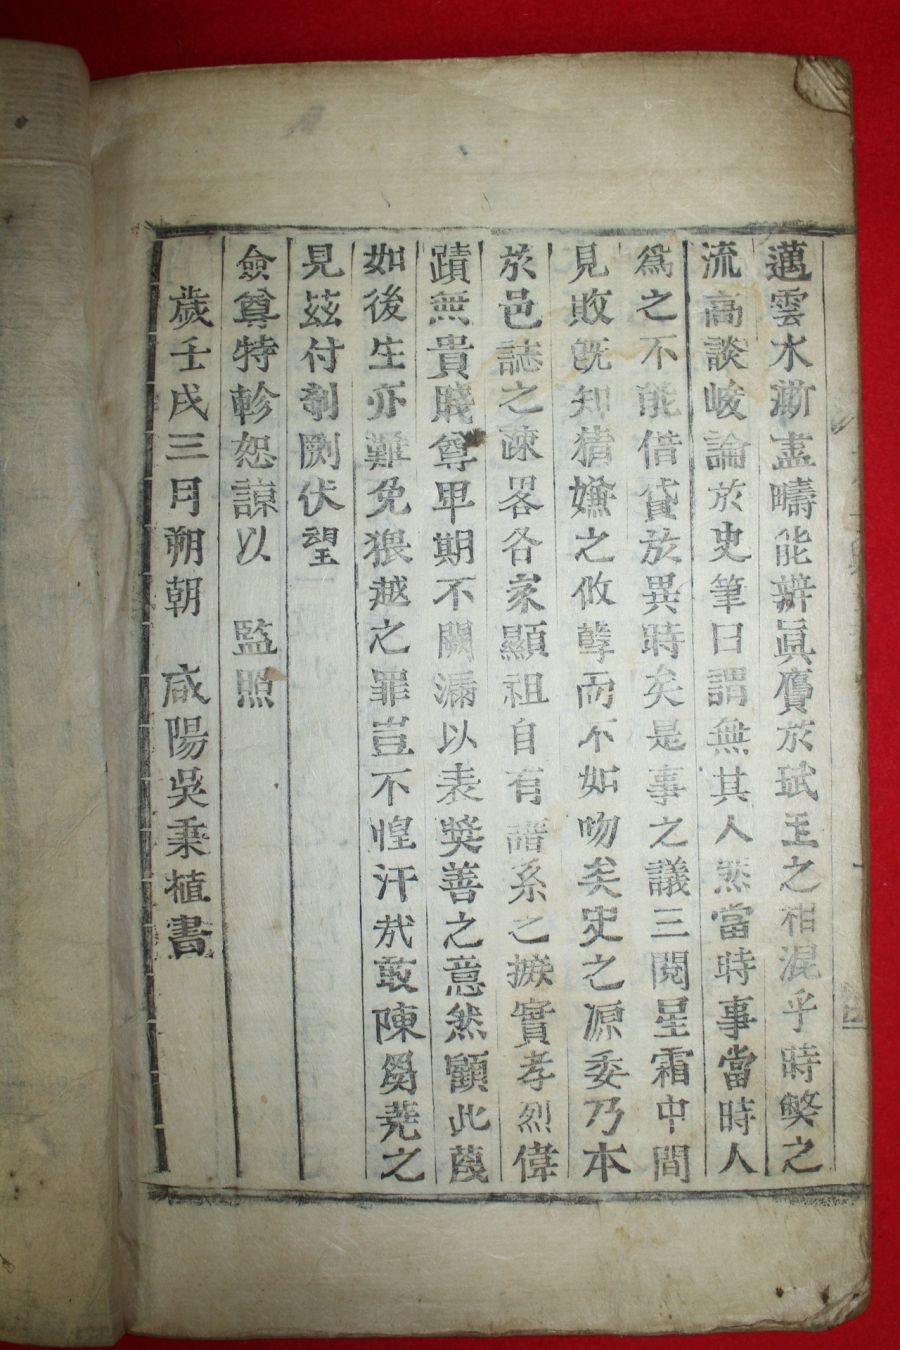 邁雲水漸盡疇能辨眞贋於珷玉之相混乎時㢢之
流高談峻論於史筆曰謂無其人然當時事當時人
爲之不能借貸於異時矣是事之議三閱星霜中間
見敗旣知猜嫌之攸孽而不如吻矣史之源委乃本
於邑誌之疎畧各家顯祖自有譜系之摭實孝烈偉
蹟無貴賤尊卑期不闕漏以表奬善之意然顧此蔑
如後生亦難免猥越之罪豈不惶汗㢤敢陳芻蕘之
見茲付剞劂伏望
僉尊特軫恕諒以 監照
歲壬戌三月朔朝 咸陽吳秉植書